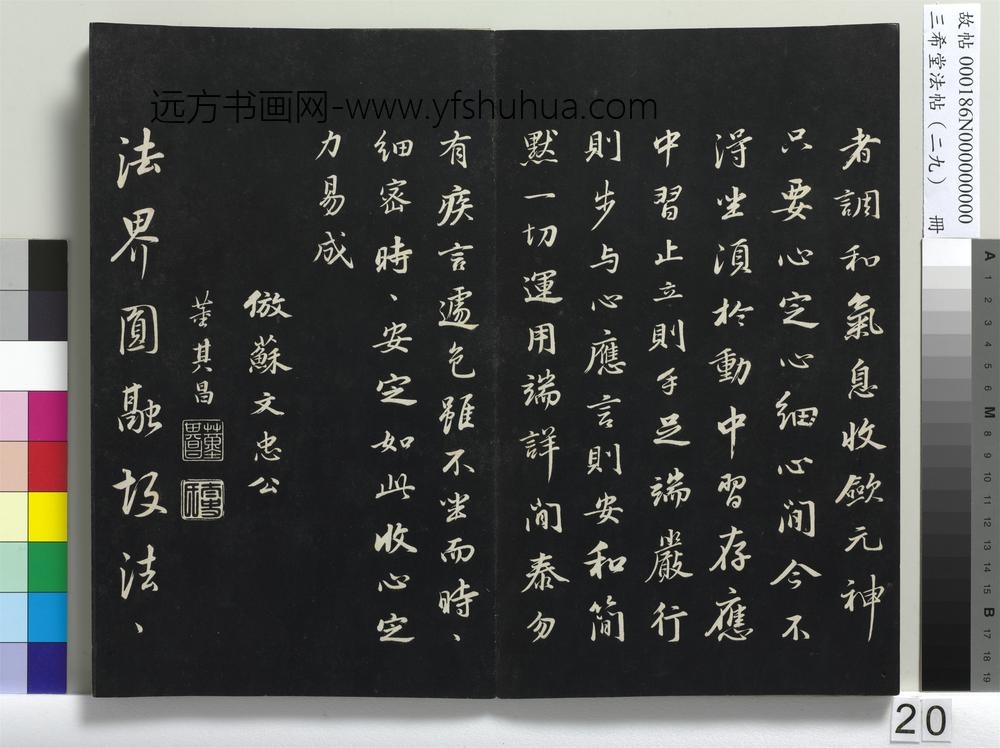 远方书画网-www.yfshuhua.com
者調和氣息收斂元神
只要心定心細心閒今不
得坐須於動中習存應
中習止立則手足端嚴行
則步与心應言則安和簡
默一切運用端詳閒泰勿
有疾言遽色雖不坐而時、
細密時、安定如此收心定
力易成
倣蘇文忠公
董其昌
法界圓融故法、
故帖 000186N000000000
三希堂法帖（二九） 冊
20
A 1 2 3 4 5 6 M 8 9 10 11 12 13 14 15 B 17 18 19